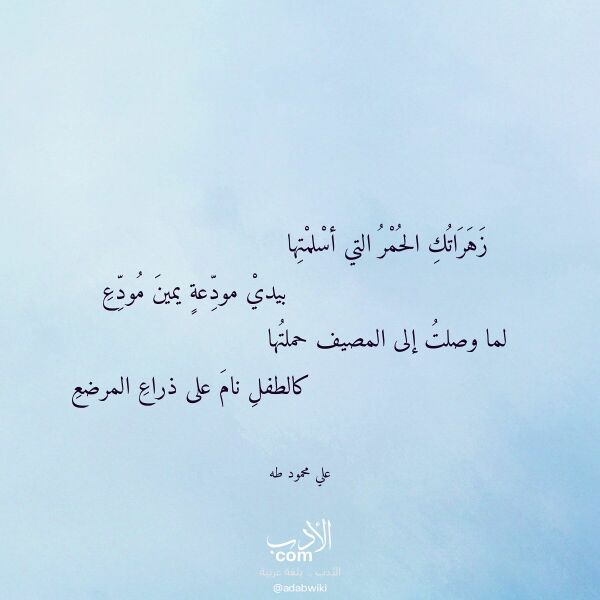 زَهَرَاتُكِ الحُمْرُ التي أسْلمْتِها
بيديْ مودِّعةٍ يمينَ مُودِّعِ
لما وصلتُ إلى المصيف حملتُها
كالطفلِ نامَ على ذراعِ المرضعِ
علي محمود طه
الأدب
com
الأدب .. بلغة عربية
@adabwiki